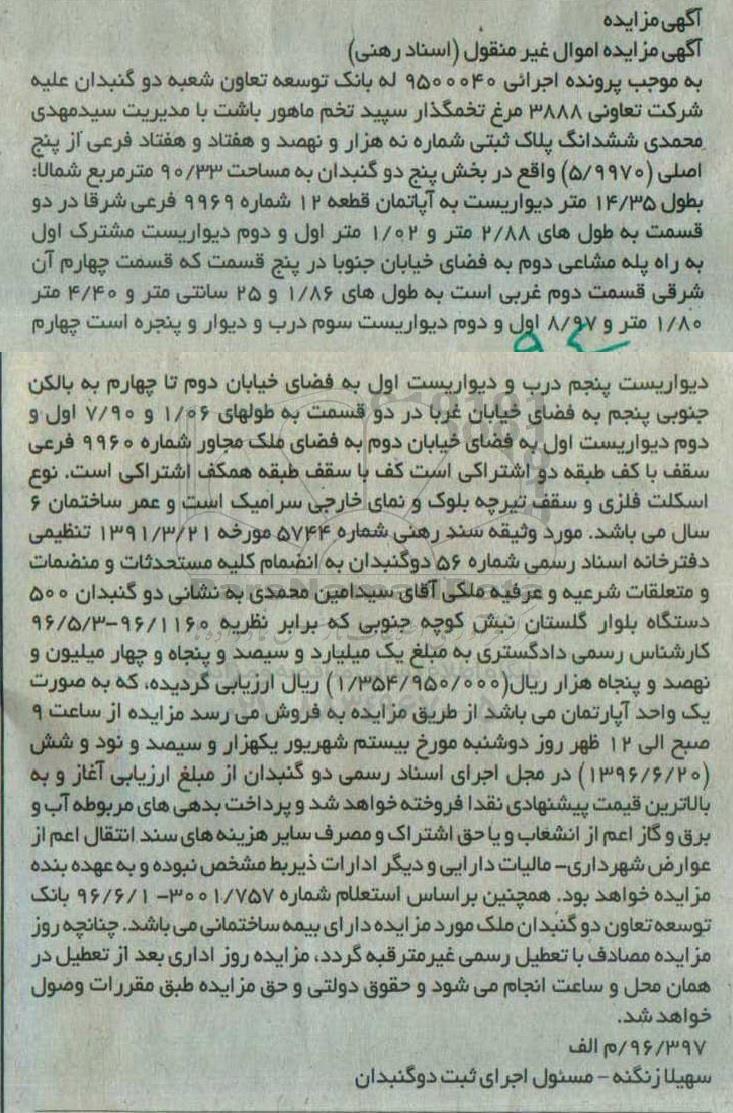 آگهی مزایده
آگهی مزایده اموال غیر منقول (اسناد رهنی)
به موجب پرونده اجرائی ۹۵۰۰۰۴۰ له بانک توسعه تعاون شعبه دو گنبدان علیه
شرکت تعاونی ۳۸۸۸ مرغ تخمگذار سپید تخم ماهور باشت با مدیریت سیدمهدی
محمدی ششدانگ پلاک ثبتی شماره نه هزار و نهصد و هفتاد و هفتاد فرعی از پنج
اصلی (۵/۹۹۷۰) واقع در بخش پنج دو گنبدان به مساحت ۹۰/۳۳ مترمربع شمالا:
بطول ۱۴/۳۵ متر دیواریست به آپاتمان قطعه ۱۲ شماره ۹۹۶۹ فرعی شرقا در دو
قسمت به طول های ۲/۸۸ متر و ۱/۰۲ متر اول و دوم دیواریست مشترک اول
به راه پله مشاعی دوم به فضای خیابان جنوبا در پنج قسمت که قسمت چهارم آن
شرقی قسمت دوم غربی است به طول های ۱/۸۶ و ۲۵ سانتی متر و ۴/۴۰ متر
۱/۸۰ متر و ۸/۹۷ اول و دوم دیواریست سوم درب و دیوار و پنجره است چهارم
دیواریست پنجم درب و دیواریست اول به فضای خیابان دوم تا چهارم به بالکن
جنوبی پنجم به فضای خیابان غربا در دو قسمت به طولهای ۱/۰۶ و ۷/۹۰ اول و
دوم دیواریست اول به فضای خیابان دوم به فضای ملک مجاور شماره ۹۹۶۰ فرعی
سقف با کف طبقه دو اشتراکی است کف با سقف طبقه همکف اشتراکی است. نوع
اسکلت فلزی و سقف تیرچه بلوک و نمای خارجی سرامیک است و عمر ساختمان ۶
سال می باشد. مورد وثیقه سند رهنی شماره ۵۷۴۴ مورخه ۱۳۹۱/۳/۲۱ تنظیمی
دفترخانه اسناد رسمی شماره ۵۶ دوگنبدان به انضمام کلیه مستحدثات و منضمات
و متعلقات شرعیه و عرفیه ملکی آقای سیدامین محمدی به نشانی دو گنبدان ۵۰۰
دستگاه بلوار گلستان نبش کوچه جنوبی که برابر نظریه ۹۶/۱۱۶۰-۹۶/۵/۳
کارشناس رسمی دادگستری به مبلغ یک میلیارد و سیصد و پنجاه و چهار میلیون و
نهصد و پنجاه هزار ریال(۱/۳۵۴/۹۵۰/۰۰۰) ریال ارزیابی گردیده، که به صورت
یک واحد آپارتمان می باشد از طریق مزایده به فروش می رسد مزایده از ساعت ۹
صبح الی ۱۲ ظهر روز دوشنبه مورخ بیستم شهریور یکهزار و سیصد و نود و شش
(۱۳۹۶/۶/۲۰) در محل اجرای اسناد رسمی دو گنبدان از مبلغ ارزیابی آغاز و به
بالاترین قیمت پیشنهادی نقدا فروخته خواهد شد و پرداخت بدهی های مربوطه آب و
برق و گاز اعم از انشعاب و یا حق اشتراک و مصرف سایر هزینه های سند انتقال اعم از
عوارض شهرداری- مالیات دارایی و دیگر ادارات ذیربط مشخص نبوده و به عهده بنده
مزایده خواهد بود. همچنین براساس استعلام شماره ۳۰۰۱/۷۵۷- ۹۶/۶/۱ بانک
توسعه تعاون دو گنبدان ملک مورد مزایده دارای بیمه ساختمانی می باشد. چنانچه روز
مزایده مصادف با تعطیل رسمی غیرمترقبه گردد، مزایده روز اداری بعد از تعطیل در
همان محل و ساعت انجام می شود و حقوق دولتی و حق مزایده طبق مقررات وصول
خواهد شد.
۹۶/۳۹۷/م الف
سهیلا زنگنه - مسئول اجرای ثبت دوگنبدان